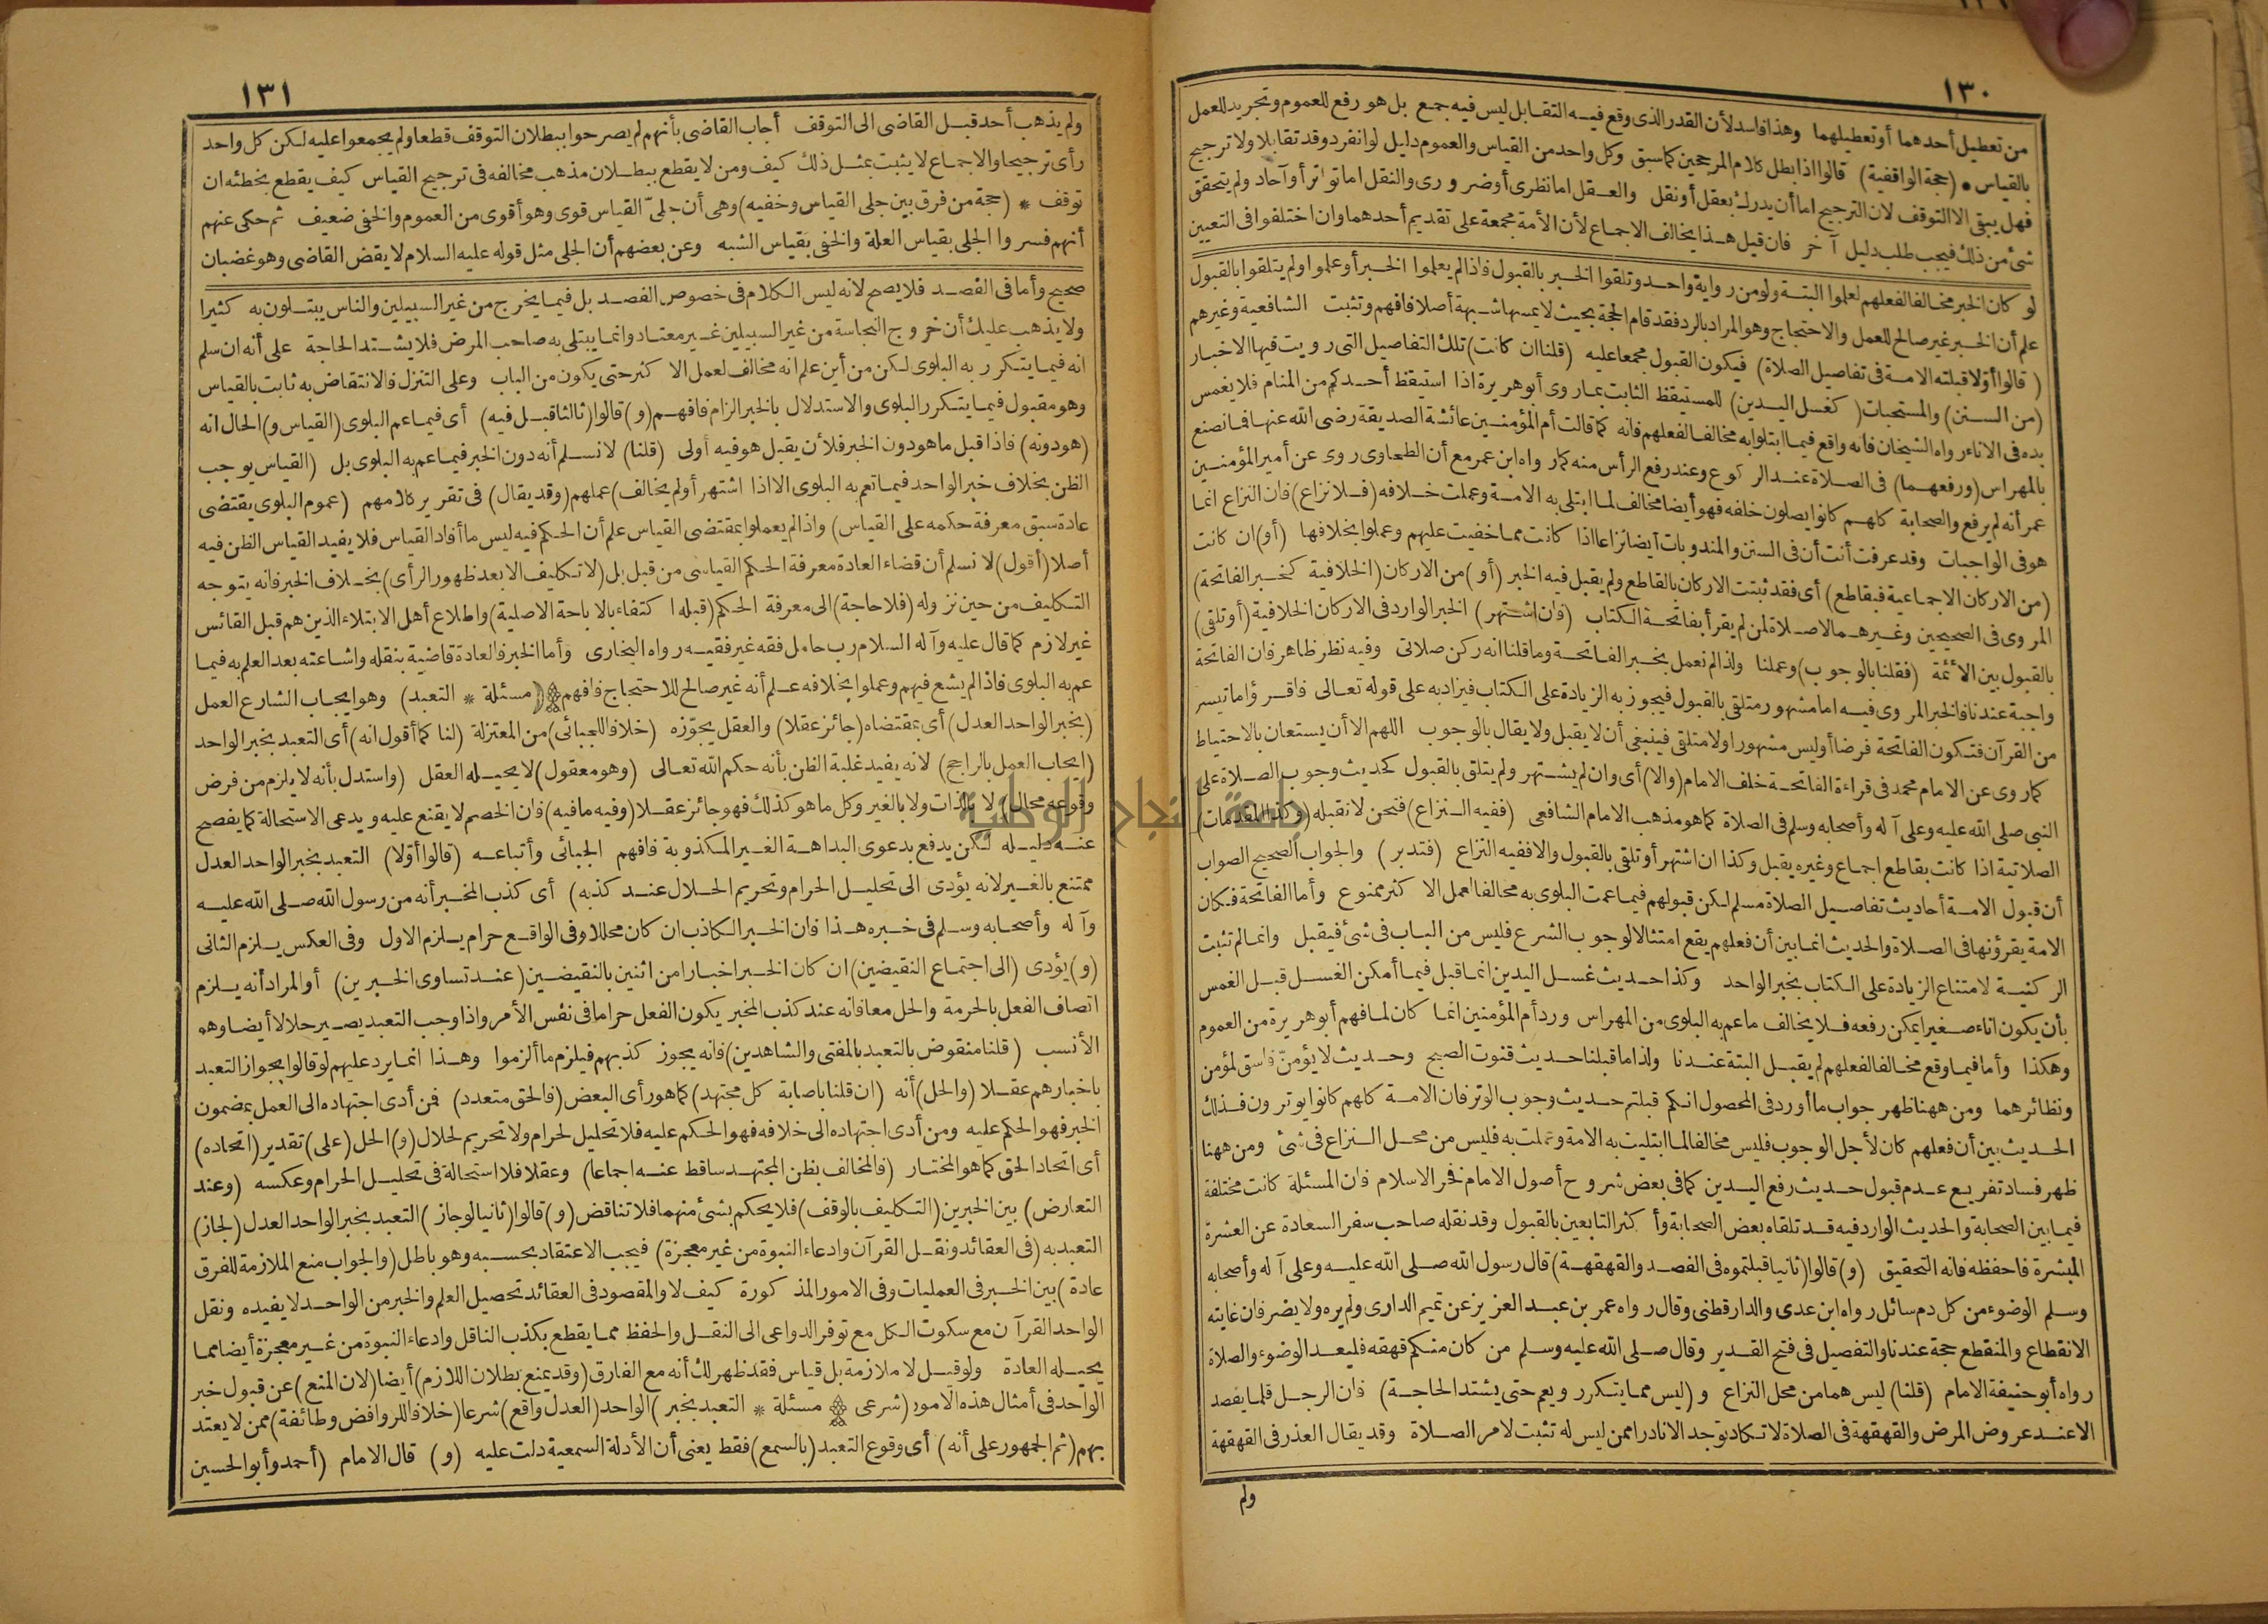 ١٣٠
من تعطيل أحدهما أو تعطيلهما وهذا فاسد لأن القدر الذى وقع فيه التقابل ليس فيه جمع بل هو رفع للعموم وتجريد للعمل
بالقياس • (حجة الواقفية) قالوا اذا بطل كلام المرجحين كما سبق وكل واحد من القياس والعموم دليل لو انفرد وقد تقابلا ولا ترجيح
فهل يبقى الا التوقف لان الترجيح اما أن يدرك بعقل أو نقل والعقل اما نظرى أو ضرورى والنقل اما تواتر أو آحاد ولم يتحقق
شئ من ذلك فيجب طلب دليل آخر فان قيل هذا يخالف الاجماع لأن الأمة مجمعة على تقديم أحدهما وان اختلفوا فى التعيين
لو كان الخبر مخالفا لفعلهم لعلموا البتة ولو من رواية واحد وتلقوا الخبر بالقبول فاذا لم يعلموا الخبر أو علموا ولم يتلقوا بالقبول
علم أن الخبر غير صالح للعمل والاحتجاج وهو المراد بالرد فقد قام الحجة بحيث لا يمسها شبهة أصلا فافهم وتثبت الشافعية وغيرهم
(قالوا أولا قبلته الامة فى تفاصيل الصلاة) فيكون القبول مجمعا عليه (قلنا ان كانت) تلك التفاصيل التى رويت فيها الاخبار
(من السنن) والمستحبات (كغسل اليدين) للمستيقظ الثابت بما روى أبو هريرة اذا استيقظ أحدكم من المنام فلا يغمس
يده فى الاناء رواه الشيخان فانه واقع فيما ابتلوا به مخالفا لفعلهم فانه كما قالت أم المؤمنين عائشة الصديقة رضى الله عنها فما نصنع
بالمهراس (ورفعهما) فى الصلاة عند الركوع وعند رفع الرأس منه كما رواه ابن عمر مع أن الطحاوى روى عن أمير المؤمنين
عمر أنه لم يرفع والصحابة كلهم كانوا يصلون خلفه فهو أيضا مخالف لما ابتلى به الامة وعملت خلافه (فلا نزاع) فان النزاع انما
هو فى الواجبات وقد عرفت أنت أن فى السنن والمندوبات أيضا نزاعا اذا كانت مما خفيت عليهم وعملوا بخلافها (أو) ان كانت
(من الاركان الاجماعية فبقاطع) أى فقد ثبتت الاركان بالقاطع ولم يقبل فيه الخبر (أو) من الاركان (الخلافية كخبر الفاتحة)
المروى فى الصحيحين وغيرهما لا صلاة لمن لم يقرأ بفاتحة الكتاب (فان اشتهر) الخبر الوارد فى الاركان الخلافية (أو تلقى)
بالقبول بين الأئمة (فقلنا بالوجوب) وعملنا ولذا لم نعمل بخبر الفاتحة وما قلنا انه ركن صلاتى وفيه نظر ظاهر فان الفاتحة
واجبة عندنا فالخبر المروى فيه اما مشهور متلقى بالقبول فيجوز به الزيادة على الكتاب فيزاد به على قوله تعالى فاقرؤا ما تيسر
من القرآن فتكون الفاتحة فرضا أو ليس مشهورا ولا متلقى فينبغى أن لا يقبل ولا يقال بالوجوب اللهم الا أن يستعان بالاحتياط
كما روى عن الامام محمد فى قراءة الفاتحة خلف الامام (والا) أى وان لم يشتهر ولم يتلق بالقبول كحديث وجوب الصلاة على
النبى صلى الله عليه وعلى آله وأصحابه وسلم فى الصلاة كما هو مذهب الامام الشافعى (ففيه النزاع) فنحن لا نقبله (وكذا المقدمات)
الصلاتية اذا كانت بقاطع اجماع وغيره يقبل وكذا ان اشتهر أو تلقى بالقبول والا ففيه النزاع (فتدبر) والجواب الصحيح الصواب
أن قبول الامة أحاديث تفاصيل الصلاة مسلم لكن قبولهم فيما عمت البلوى به مخالفا لعمل الاكثر ممنوع وأما الفاتحة فكان
الامة يقرؤنها فى الصلاة والحديث انما بين أن فعلهم يقع امتثالا لوجوب الشرع فليس من الباب فى شئ فيقبل وانما لم تثبت
الركنية لامتناع الزيادة على الكتاب بخبر الواحد وكذا حديث غسل اليدين انما قبل فيما أمكن الغسل قبل الغمس
بأن يكون اناء صغيرا يمكن رفعه فلا يخالف ما عم به البلوى من المهراس ورد أم المؤمنين انما كان لما فهم أبو هريرة من العموم
وهكذا وأما فيما وقع مخالفا لفعلهم لم يقبل البتة عندنا ولذا ما قبلنا حديث قنوت الصبح وحديث لا يؤمن فاسق لمؤمن
ونظائرهما ومن ههنا ظهر جواب ما أورد فى المحصول انكم قبلتم حديث وجوب الوتر فان الامة كلهم كانوا يوترون فذلك
الحديث بين أن فعلهم كان لأجل الوجوب فليس مخالفا لما ابتليت به الامة وعملت به فليس من محل النزاع فى شئ ومن ههنا
ظهر فساد تفريع عدم قبول حديث رفع اليدين كما فى بعض شروح أصول الامام فخر الاسلام فان المسئلة كانت مختلفة
فيما بين الصحابة والحديث الوارد فيه قد تلقاه بعض الصحابة وأكثر التابعين بالقبول وقد نقله صاحب سفر السعادة عن العشرة
المبشرة فاحفظه فانه التحقيق (و) قالوا (ثانيا قبلتموه فى الفصد والقهقهة) قال رسول الله صلى الله عليه وعلى آله وأصحابه
وسلم الوضوء من كل دم سائل رواه ابن عدى والدارقطنى وقال رواه عمر بن عبد العزيز عن تميم الدارى ولم يره ولا يضر فان غايته
الانقطاع والمنقطع حجة عندنا والتفصيل فى فتح القدير وقال صلى الله عليه وسلم من كان منكم قهقه فليعد الوضوء والصلاة
رواه أبو حنيفة الامام (قلنا) ليس هما من محل النزاع و(ليس مما يتكرر ويعم حتى يشتد الحاجة) فان الرجل قلما يفصد
الا عند عروض المرض والقهقهة فى الصلاة لا تكاد توجد الا نادرا ممن ليس له تثبت لامر الصلاة وقد يقال العذر فى القهقهة
ولم
١٣١
ولم يذهب أحد قبل القاضى الى التوقف أجاب القاضى بأنهم لم يصرحوا ببطلان التوقف قطعا ولم يجمعوا عليه لكن كل واحد
رأى ترجيحا والاجماع لا يثبت بمثل ذلك كيف ومن لا يقطع ببطلان مذهب مخالفه فى ترجيح القياس كيف يقطع بخطئه ان
توقف * (حجة من فرق بين جلى القياس وخفيه) وهى أن جلىّ القياس قوى وهو أقوى من العموم والخفى ضعيف ثم حكى عنهم
أنهم فسروا الجلى بقياس العلة والخفى بقياس الشبه وعن بعضهم أن الجلى مثل قوله عليه السلام لا يقض القاضى وهو غضبان
صحيح وأما فى الفصد فلا يصح لانه ليس الكلام فى خصوص الفصد بل فيما يخرج من غير السبيلين والناس يبتلون به كثيرا
ولا يذهب عليك أن خروج النجاسة من غير السبيلين غير معتاد وانما يبتلى به صاحب المرض فلا يشتد الحاجة على أنه ان سلم
انه فيما يتكرر به البلوى لكن من أين علم انه مخالف لعمل الاكثر حتى يكون من الباب وعلى التنزل فالانتقاض به ثابت بالقياس
وهو مقبول فيما يتكرر البلوى والاستدلال بالخبر الزام فافهم (و) قالوا (ثالثا قبل فيه) أى فيما عم البلوى (القياس و) الحال انه
(هو دونه) فاذا قبل ما هو دون الخبر فلأن يقبل هو فيه أولى (قلنا) لا نسلم أنه دون الخبر فيما عم به البلوى بل (القياس يوجب
الظن بخلاف خبر الواحد فيما تعم به البلوى الا اذا اشتهر أو لم يخالف) عملهم (وقد يقال) فى تقرير كلامهم (عموم البلوى يقتضى
عادة سبق معرفة حكمه على القياس) واذا لم يعملوا بمقتضى القياس علم أن الحكم فيه ليس ما أفاد القياس فلا يفيد القياس الظن فيه
أصلا (أقول) لا نسلم أن قضاء العادة معرفة الحكم القياسى من قبل بل (لا تكليف الا بعد ظهور الرأى) بخلاف الخبر فانه يتوجه
التكليف من حين نزوله (فلا حاجة) الى معرفة الحكم (قبله اكتفاء بالاباحة الاصلية) واطلاع أهل الابتلاء الذين هم قبل القائس
غير لازم كما قال عليه وآله السلام رب حامل فقه غير فقيه رواه البخارى وأما الخبر فالعادة قاضية بنقله واشاعته بعد العلم به فيما
عم به البلوى فاذا لم يشع فيهم وعملوا بخلافه علم أنه غير صالح للاحتجاج فافهم (مسئلة * التعبد) وهو ايجاب الشارع العمل
(بخبر الواحد العدل) أى بمقتضاه (جائز عقلا) والعقل يجوّزه (خلافا للجبائى) من المعتزلة (لنا كما أقول انه) أى التعبد بخبر الواحد
(ايجاب العمل بالراجح) لانه يفيد غلبة الظن بأنه حكم الله تعالى (وهو معقول) لا يحيله العقل (واستدل بأنه لا يلزم من فرض
وقوعه محال) لا بالذات ولا بالغير وكل ما هو كذلك فهو جائز عقلا (وفيه ما فيه) فان الخصم لا يقنع عليه ويدعى الاستحالة كما يفصح
عنه دليله لكن يدفع بدعوى البداهة الغير المكذوبة فافهم الجبائى وأتباعه (قالوا أوّلا) التعبد بخبر الواحد العدل
ممتنع بالغير لانه يؤدى الى تحليل الحرام وتحريم الحلال عند كذبه) أى كذب المخبر أنه من رسول الله صلى الله عليه
وآله وأصحابه وسلم فى خبره هذا فان الخبر الكاذب ان كان محللا وفى الواقع حرام يلزم الاول وفى العكس يلزم الثانى
(و) يؤدى (الى اجتماع النقيضين) ان كان الخبر اخبارا من اثنين بالنقيضين (عند تساوى الخبرين) أو المراد أنه يلزم
اتصاف الفعل بالحرمة والحل معا فانه عند كذب المخبر يكون الفعل حراما فى نفس الأمر واذا وجب التعبد يصير حلالا أيضا وهو
الأنسب (قلنا منقوض بالتعبد بالمفتى والشاهدين) فانه يجوز كذبهم فيلزم ما ألزموا وهذا انما يرد عليهم لو قالوا بجواز التعبد
باخبارهم عقلا (والحل) أنه (ان قلنا باصابة كل مجتهد) كما هو رأى البعض (فالحق متعدد) فمن أدى اجتهاده الى العمل بمضمون
الخبر فهو الحكم عليه ومن أدى اجتهاده الى خلافه فهو الحكم عليه فلا تحليل لحرام ولا تحريم لحلال (و) الحل (على) تقدير (اتحاده)
أى اتحاد الحق كما هو المختار (فالمخالف بظن المجتهد ساقط عنه اجماعا) وعقلا فلا استحالة فى تحليل الحرام وعكسه (وعند
التعارض) بين الخبرين (التكليف بالوقف) فلا يحكم بشئ منهما فلا تناقض (و) قالوا (ثانيا لو جاز) التعبد بخبر الواحد العدل (لجاز)
التعبد به (فى العقائد ونقل القرآن وادعاء النبوة من غير معجزة) فيجب الاعتقاد بحسبه وهو باطل (والجواب منع الملازمة للفرق
عادة) بين الخبر فى العمليات وفى الامور المذكورة كيف لا والمقصود فى العقائد تحصيل العلم والخبر من الواحد لا يفيده ونقل
الواحد القرآن مع سكوت الكل مع توفر الدواعى الى النقل والحفظ مما يقطع بكذب الناقل وادعاء النبوة من غير معجزة أيضا مما
يحيله العادة ولو قيل لا ملازمة بل قياس فقد ظهر لك أنه مع الفارق (وقد يمنع بطلان اللازم) أيضا (لان المنع) عن قبول خبر
الواحد فى أمثال هذه الامور (شرعى مسئلة * التعبد بخبر) الواحد (العدل واقع) شرعا (خلافا للروافض وطائفة) ممن لا يعتد
بهم (ثم الجمهور على أنه) أى وقوع التعبد (بالسمع) فقط يعنى أن الأدلة السمعية دلت عليه (و) قال الامام (أحمد وأبو الحسين
جامعة النجاح الوطنية